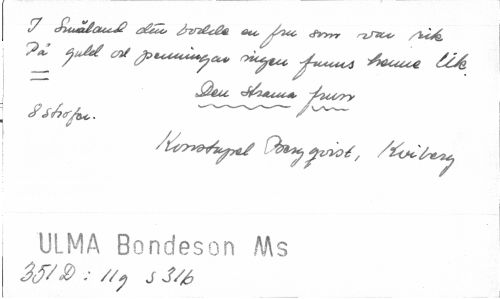 I Småland där bodde en fru som var rik
På guld och penningar ingen fanns henne lik.
Den strama frun
8 strofer.
Konstapel Bergqvist, Kviberg
ULMA Bondeson Ms
351 D : 11g s 316